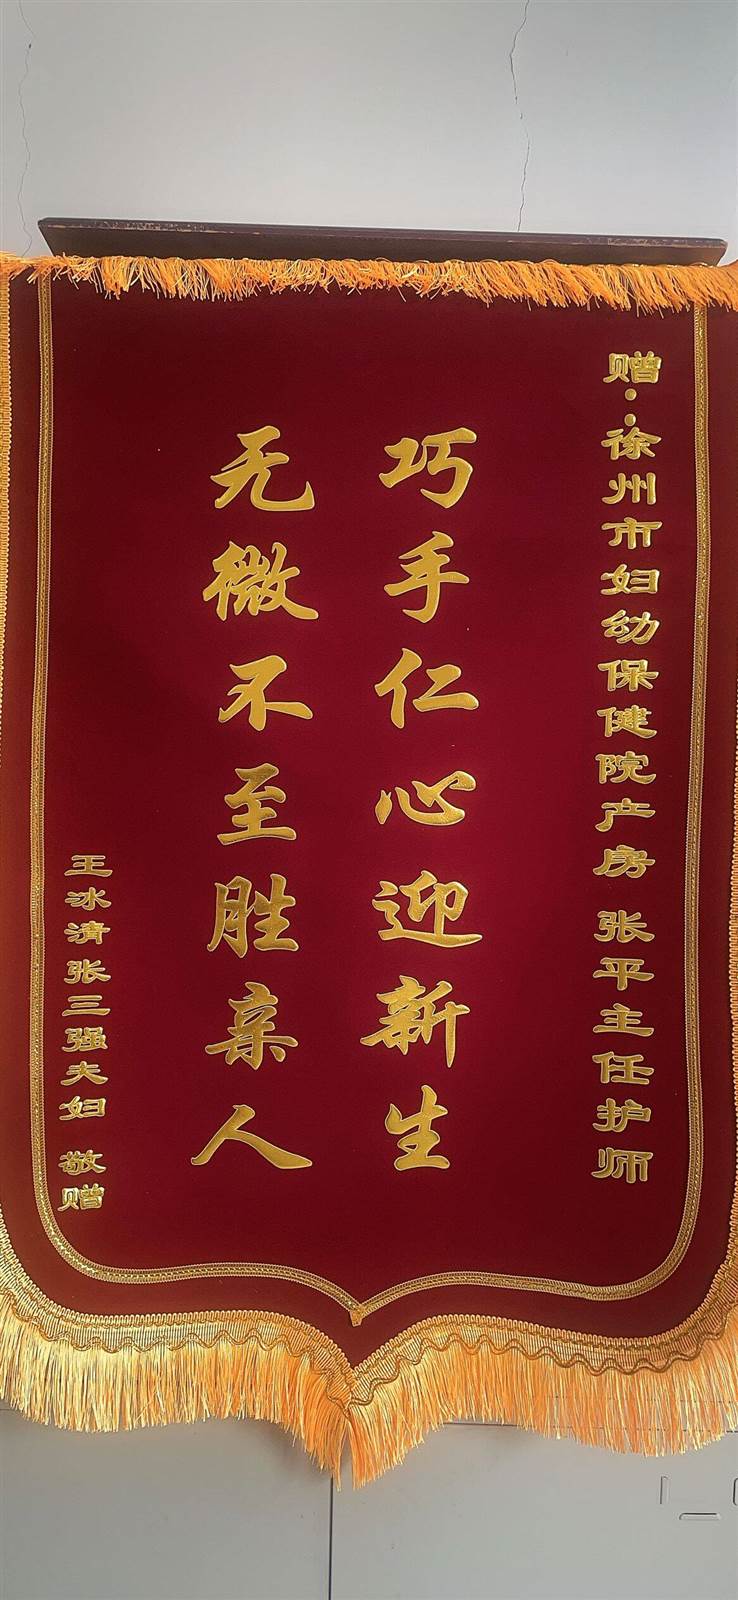 赠:徐州市妇幼保健院产房 张平主任护师
巧手仁心迎新生
无微不至胜亲人
王冰清张三强夫妇 敬赠